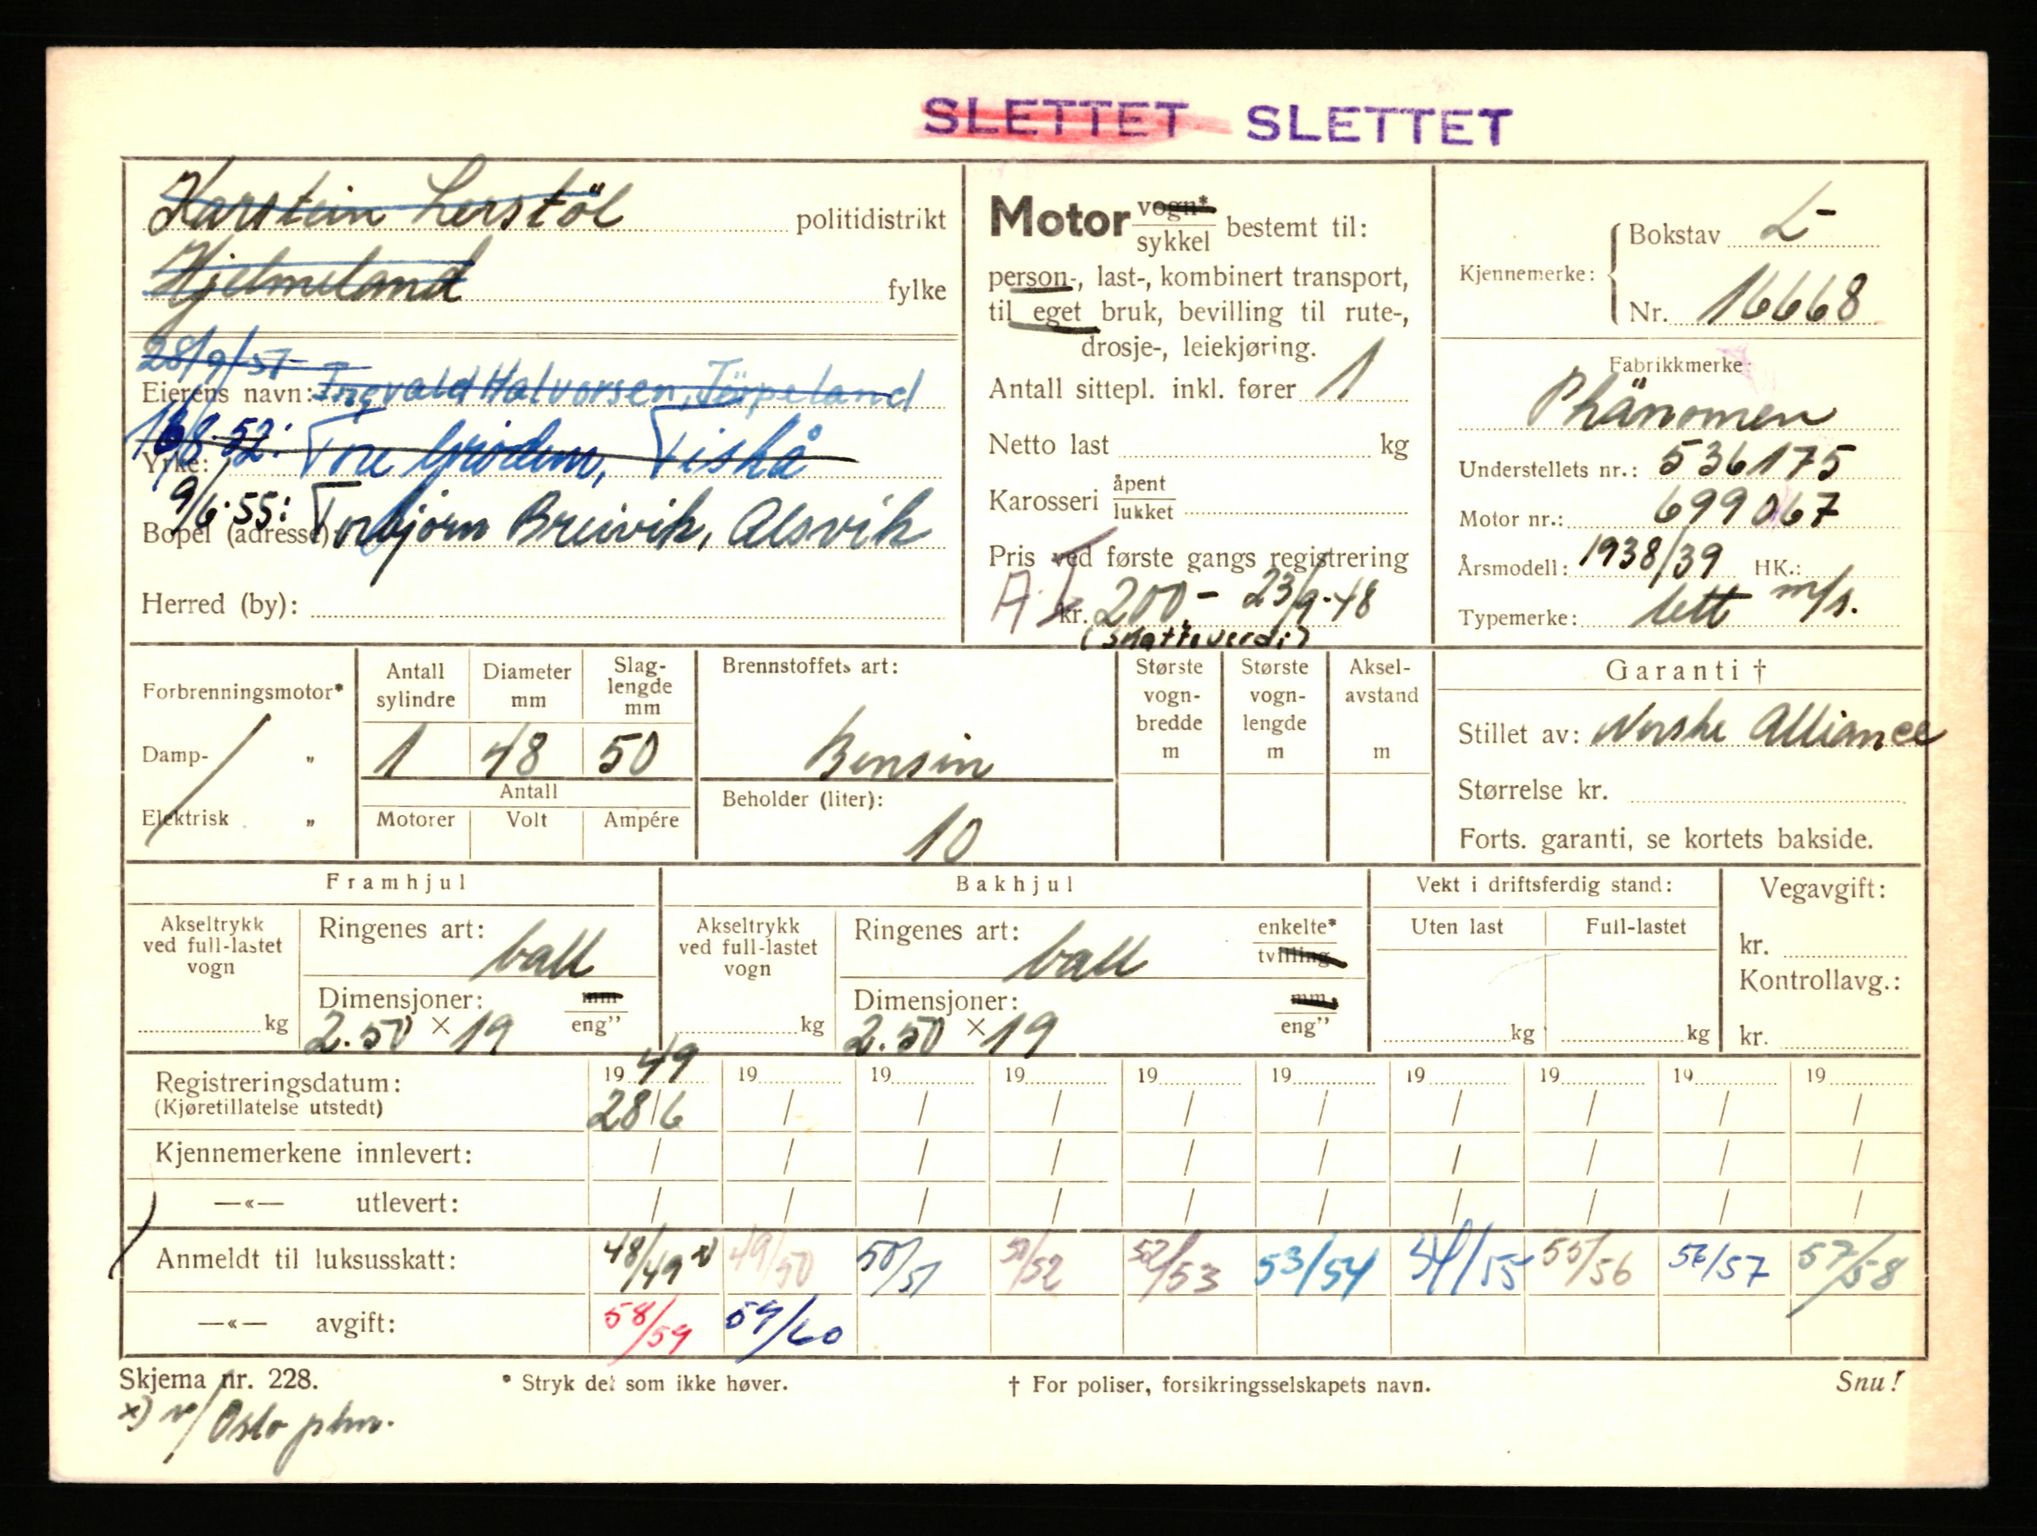 SLETTET SLETTET
Karstein Lerstöl politidistrikt
Hjelmeland fylke
28/9/51
Eierens navn: Ingvald Halvorsen, Jörpeland
18/8.52: Tore Grödem, Fiskå
Yrke:
9/6.55: Torbjörn Breivik, Alsvik
Bopel (adresse)
Herred (by):
Motor vogn* / sykkel bestemt til:
person-, last-, kombinert transport,
til eget bruk, bevilling til rute-,
drosje-, leiekjøring.
Antall sittepl. inkl. fører 1
Netto last kg
Karosseri åpent / lukket
Pris ved første gangs registrering
kr. 200.- 23/9.48
(skatteverdi)
Kjennemerke: Bokstav L-
Nr. 16668
Fabrikkmerke:
Phänomen
Understellets nr.: 536175
Motor nr.: 699067
Årsmodell: 1938/39 HK.:
Typemerke: lett m/s.
Forbrenningsmotor*
Damp- "
Elektrisk "
Antall sylindre Diameter mm Slag-lengde mm
1 48 50
Antall
Motorer Volt Ampére
Brennstoffets art:
Bensin
Beholder (liter):
10
Største vogn-bredde m
Største vogn-lengde m
Aksel-avstand m
Garanti †
Stillet av: Norske Alliance
Størrelse kr.
Forts. garanti, se kortets bakside.
Framhjul
Akseltrykk ved full-lastet vogn
kg
Ringenes art: ball
Dimensjoner: mm / eng"
2.50 × 19
Bakhjul
Akseltrykk ved full-lastet vogn
kg
Ringenes art: ball enkelte* / tvilling
Dimensjoner: mm / eng"
2.50 × 19
Vekt i driftsferdig stand:
Uten last Full-lastet
kg kg
Vegavgift:
kr.
Kontrollavg.:
kr.
Registreringsdatum: 19 49 19 19 19 19 19 19 19 19 19
(Kjøretillatelse utstedt) 28/6 / / / / / / / / /
Kjennemerkene innlevert: / / / / / / / / / /
—«— utlevert: / / / / / / / / / /
Anmeldt til luksusskatt: 48/49 x) 49/50 50/51 51/52 52/53 53/54 54/55 55/56 56/57 57/58
—«— avgift: 58/59 59/60
Skjema nr. 228. * Stryk det som ikke høver. † For poliser, forsikringsselskapets navn. Snu!
x) v/Oslo